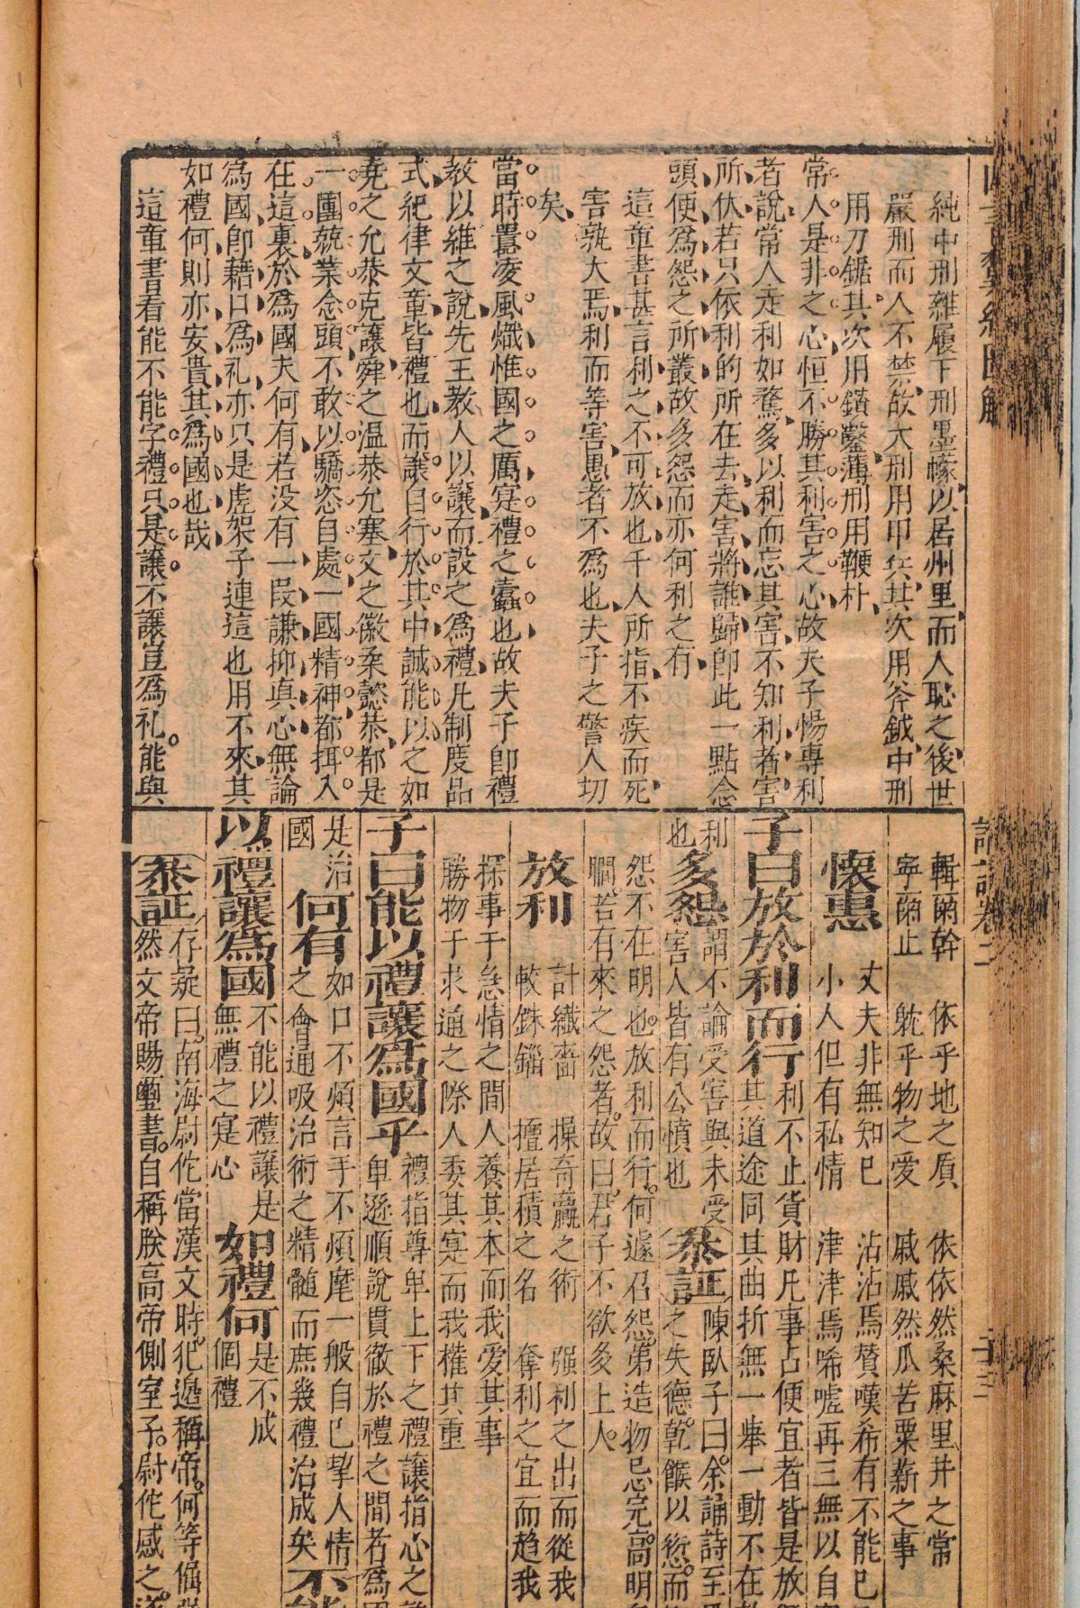 純中刑雜屨下刑墨幪以居州里而人恥之後世
嚴刑而人不禁故大刑用甲兵其次用斧鉞中刑
用刀鋸其次用鑽鑿薄刑用鞭朴
常人是非之心恒不勝其利害之心故夫子惕專利
者說常人走利如騖多以利而忘其害不知利者害
所伏若只依利的所在去走害將誰歸即此一點念
頭便為怨之所叢故多怨而亦何利之有
這章書甚言利之不可放也千人所指不疾而死
害孰大焉利而等害愚者不為也夫子之警人切
矣
當時囂凌風熾惟國之厲寔禮之蠹也故夫子即禮
教以維之說先王教人以讓而設之為禮凡制度品
式紀律文章皆禮也而讓自行於其中誠能以之如
堯之允恭克讓舜之溫恭允塞文之徽柔懿恭都是
一團兢業念頭不敢以驕恣自處一國精神都揖入
在這裏於為國夫何有若没有一段謙抑真心無論
為國即藉口為礼亦只是虛架子連這也用不來其
如禮何則亦安貴其為國也哉
這章書看能不能字禮只是讓不讓豈為礼能與
輯菌幹 依乎地之質 依依然桑麻里井之常
寧菌止 躭乎物之愛 戚戚然瓜苦粟薪之事
懷惠 丈夫非無知已 沾沾焉贊嘆希有不能已
小人但有私情 津津焉唏噓再三無以自
子曰放於利而行 利不止貨財凡事占便宜者皆是放
其道途同其曲折無一舉一動不在
利也 多怨 謂不論受害與未受害人皆有公憤也 叅証 陳臥子曰余誦詩至
之失德乾餱以愆而
怨不在明也放利而行何遽召怨第造物忌完高明
瞯若有來之怨者故曰君子不欲多上人
放利 計纖嗇 操奇贏之術 强利之出而從我
較銖錙 擅居積之名 奪利之宜而趋我
探事于急情之間人養其本而我愛其事
勝物于求通之際人委其寔而我權其重
子曰能以禮讓為國乎 禮指尊卑上下之禮讓指心之
卑遜順說貫徹於禮之間者為
是治國 何有 如口不煩言手不煩麾一般自已挈人情
之會通吸治術之精髓而庶幾禮治成矣 不能
以禮讓為國 不能以禮讓是無禮之寔心 如禮何 是不成個禮
叅証 存疑曰南海尉佗當漢文時犯邊稱帝何等倔
然文帝賜璽書自稱朕高帝側室子尉佗感之